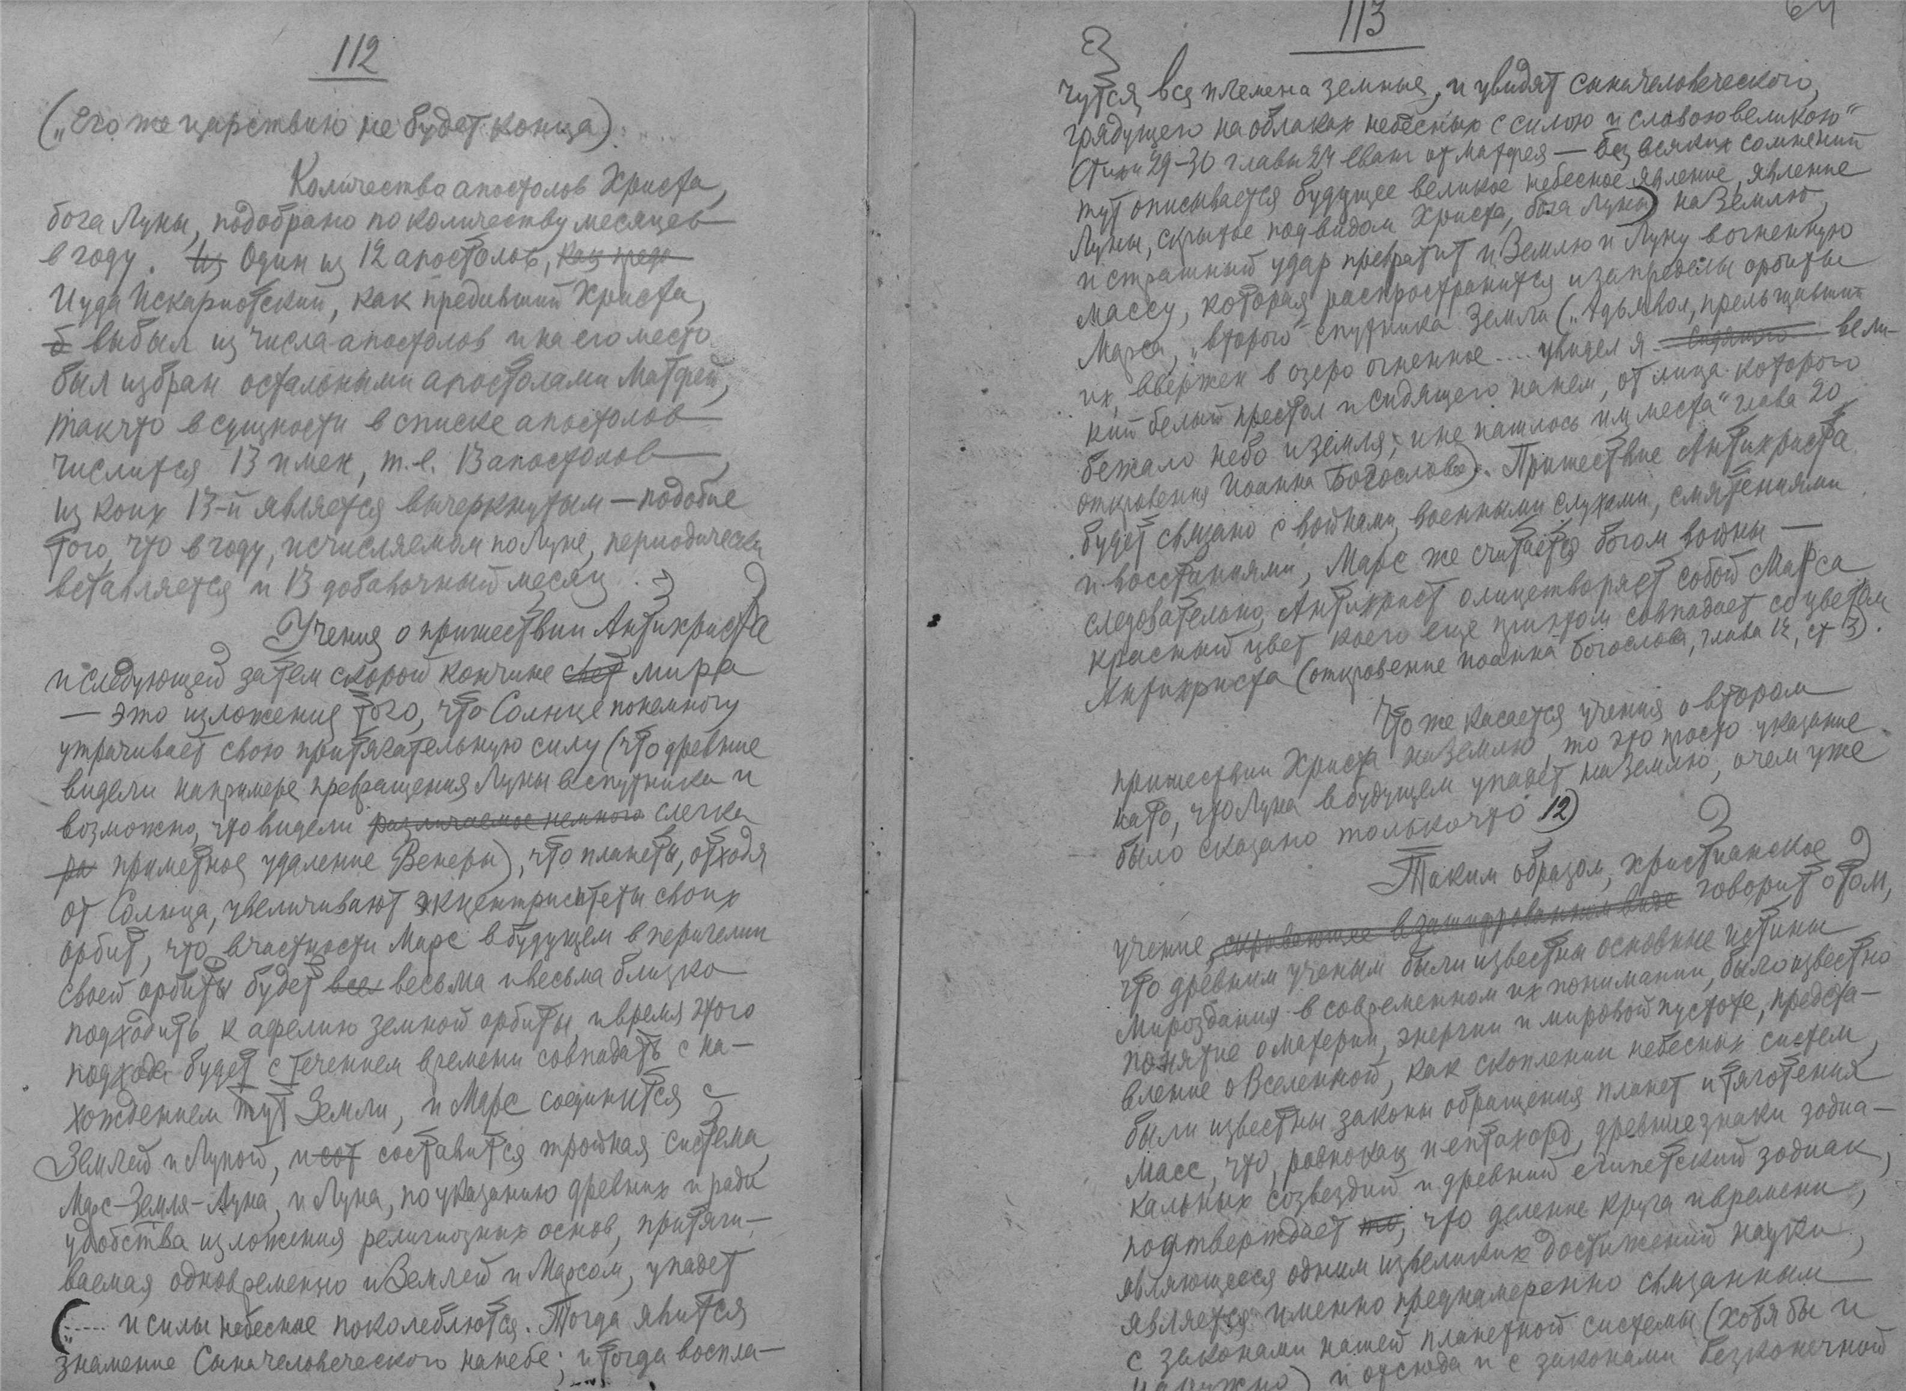 112
(„Его же царствию не будет конца).
Количество апостолов Христа,
бога Луны, подобрано по количеству месяцев
в году. Из Один из 12 апостолов,
Иуда Искариотский, как предавший Христа,
выбыл из числа апостолов и на его место
был избран остальными апостолами Матфей,
так что в сущности в списке апостолов
числится 13 имен, т.е. 13 апостолов,
из коих 13-й является вычеркнутым — подобие
того, что в году, исчисляемом по Луне, периодически
вставляется и 13 добавочный месяц.
Учения о пришествии Антихриста
и следующей затем скорой кончине свет мира
— это изложения того, что Солнце понемногу
утрачивает свою притягательную силу (что древние
видели на примере превращения Луны в спутника и
возможно, что видели различаемое немного слегка
ра приметное удаление Венеры), что планеты, отходя
от Солнца, увеличивают эксцентриситеты своих
орбит, что в частности Марс в будущем в перигелии
своей орбиты будет все весьма и весьма близко
подходить к афелию земной орбиты, и время этого
подхода будет с течением времени совпадать с на-
хождением тут Земли, и Марс соединится с
Землей и Луной, и сос составится тройная система
Марс-Земля-Луна, и Луна, по указанию древних и ради
удобства изложения религиозных основ, притяги-
ваемая одновременно и Землей и Марсом, упадет
(„.... и силы небесные поколеблются. Тогда явится
знамение Сына человеческого на небе; и тогда воспла-
113
64
чутся все племена земные, и увидят сына человеческого,
грядущего на облаках небесных с силою и славою великою“
Стихи 29-30 главы 24 Еванг от Матфея — без всяких сомнений
тут описывается будущее великое небесное явление, явление
Луны, скрытое под видом Христа, бога Луны) на Землю,
и страшный удар превратит и Землю и Луну в огненную
массу, которая распространится и за пределы орбиты
Марса, „второго“ спутника Земли („А дьявол, прельщавший
их, ввержен в озеро огненное .... увидел я сидящего вели-
кий белый престол и сидящего на нем, от лица которого
бежало небо и земля; и не нашлось им места“ глава 20
откровения Иоанна Богослова). Пришествие Антихриста
будет связано с войнами, военными слухами, смятениями
и восстаниями, Марс же считается богом войны —
следовательно, Антихрист олицетворяет собой Марса
красный цвет коего еще притом совпадает со цветом
Антихриста (откровение Иоанна Богослова, глава 12, ст 3).
Что же касается учения о втором
пришествии Христа на Землю, то это просто указание
на то, что Луна в будущем упадет на Землю, о чем уже
было сказано только что 12)
Таким образом, христианское
учение, скрывающее в зашифрованном виде говорит о том,
что древним ученым были известны основные истины
Мироздания в современном их понимании, было известно
понятие о материи, энергии и мировой пустоте, предста-
вление о Вселенной, как скоплении небесных систем,
были известны законы обращения планет и тяготения
масс, что, равно как и гептахорд, древние знаки зодиа-
кальных созвездий и древний египетский зодиак,
подтверждает то, что деление круга и времени,
являющееся одним из великих достижений науки,
является именно преднамеренно связанным
с законами нашей планетной системы (хотя бы и
наружно) и отсюда и с законами бесконечной